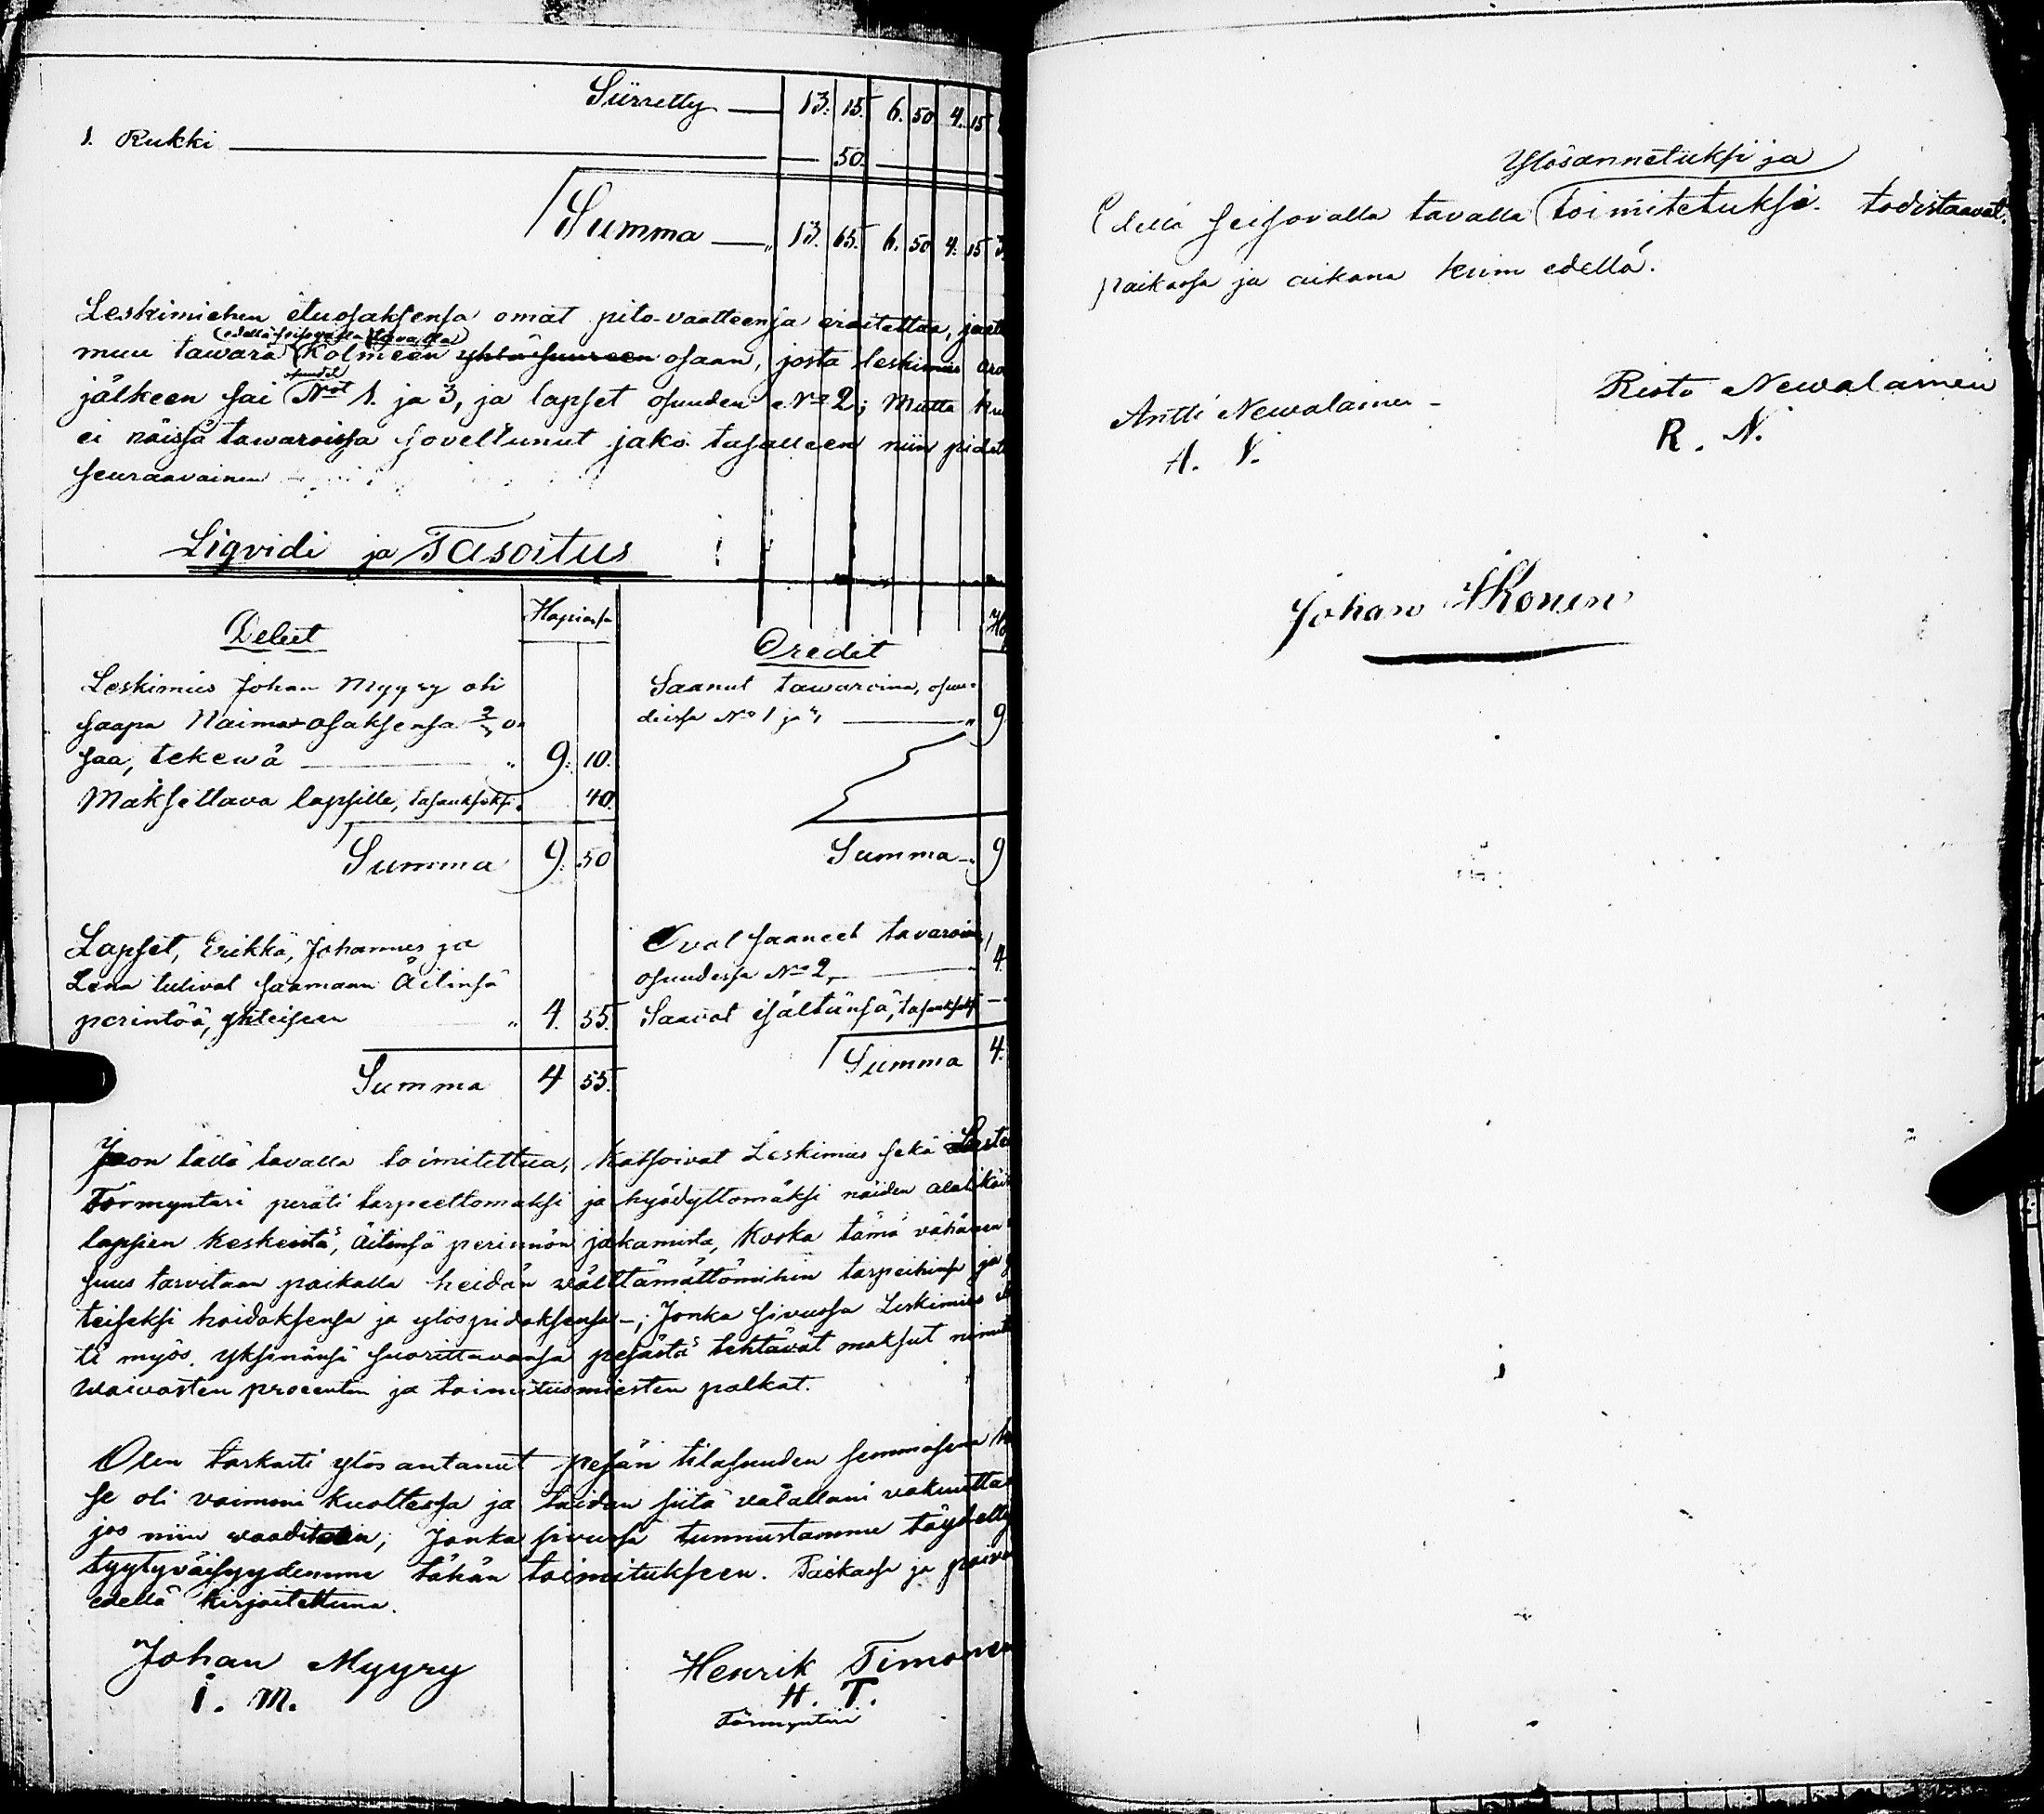 Siirretty — 13. 15. 6. 50. 4. 15
1. Rukki — 50.
Summa — " 13. 65. 6. 50 4. 15 3.
Leskimiehen etuosaksensa omat pito-vaatteensa eroitettua, jaett
(edellä seisovalla tavalla)
muu tawara Kolmeen yhtä suureen osaan, josta leskimies
osuudet
jälkeen sai Not 1. ja 3, ja lapset osuuden No 2; Mutta ku
ei näissä tawaroissa soveltunut jako tasalleen niin pidet
seuraavainen
Liqvidi ja Tasoitus
Debet Hopiassa Credit
Leskimies Johan Myyry oli Saanut tawaroina, osuu-
saapa Naima-osaksensa 2/3 o- deissa No 1 ja 3 — " 9
saa, tekewä — " 9. 10.
Maksettava lapsille, tasaukseksi " 40.
Summa 9. 50 Summa " 9
Lapset, Erikka, Johannes ja Ovat saaneet tavaroina,
Lena tulivat saamaan Äitinsä osuudessa No 2, — " 4.
perintöä, yhteiseen " 4. 55. Saavat isältänsä, tasauksek —
Summa 4 55. Summa 4.
Jaon tällä tavalla toimitettua, katsoivat Leskimies sekä Laste
Förmyntäri peräti tarpeettomaksi ja hyödyttömäksi näiden alaikäis
lapsien keskeistä, äitinsä perinnön jakamista, koska tämä vähänen
suus tarvitaan paikalla heidän välttämättömihin tarpeihinsa ja y
teiseksi hoidoksensa ja ylöspidoksensa -; Jonka sivussa Leskimies
ti myös yksinänsä suorittavansa pesästä tehtävät maksut nimit
waivasten procentin ja toimitusmiesten palkat.
Olen tarkasti ylös antanut pesän tilasuuden semmosena k
se oli vaimoni kuoltessa ja taidan siitä valallani vakuutta
jos niin waaditaan; Jonka sivussa tunnustamme täydelly
tyytyväisyydemme tähän toimitukseen. Paikassa ja päivä
edellä kirjoitettuna.
Johan Myyry Henrik Timonen
I. M. H. T.
Förmyntäri
Ylösannetuksi ja
Edellä seisovalla tavalla toimitetuksi todistaavat.
paikassa ja aikana kuin edellä.
Antti Newalainen - Risto Newalainen
A. N. R. N.
Johan Ikonen